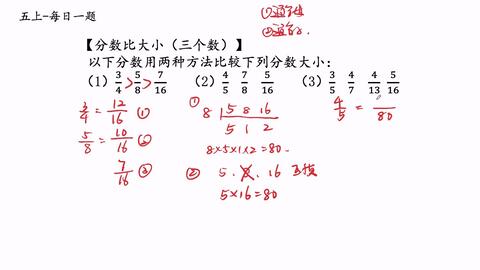 五上-每日一题
①通分母
②通分子.
【分数比大小（三个数）】
以下分数用两种方法比较下列分数大小：
（1）3/4 > 5/8 > 7/16 （2）4/5 7/8 5/16 （3）3/5 4/7 4/13 5/16
3/4 = 12/16 ①
5/8 = 10/16 ②
7/16 ③
① 8 5 8 16
5 1 2
8×5×1×2=80.
② 5. 8. 16 互换
5×16=80
4/5 = /80